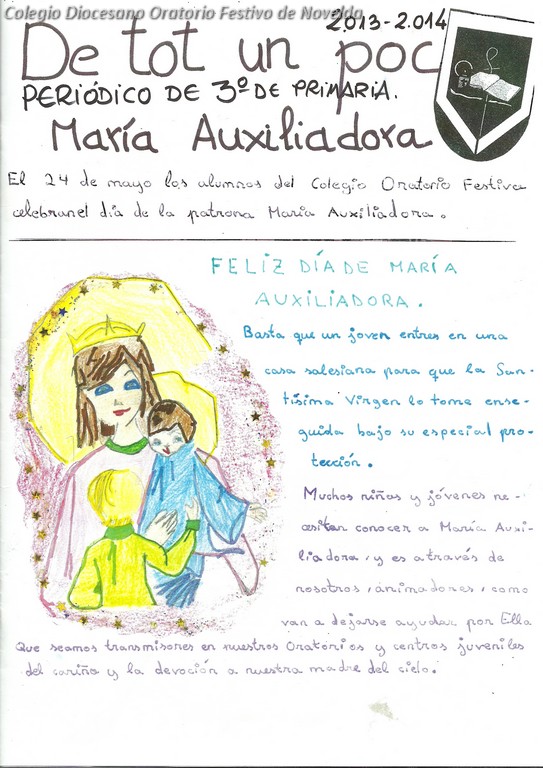 Colegio Diocesano Oratorio Festivo de Novelda
2.013-2.014
De tot un poc
PERIÓDICO DE 3º DE PRIMARIA.
María Auxiliadora
El 24 de mayo los alumnos del Colegio Oratorio Festivo
celebran el día de la patrona María Auxiliadora.
FELIZ DÍA DE MARÍA
AUXILIADORA.
Basta que un joven entres en una
casa salesiana para que la San-
tísima Virgen lo tome ense-
guida bajo su especial pro-
tección.
Muchos niñas y jóvenes ne-
cesitan conocer a María Auxi-
liadora, y es a través de
nosotros, ánimadores, como
van a dejarse ayudar por Ella
Que seamos transmisores en nuestros Oratorios y centros juveniles
del cariña y la devoción a nuestra madre del cielo.